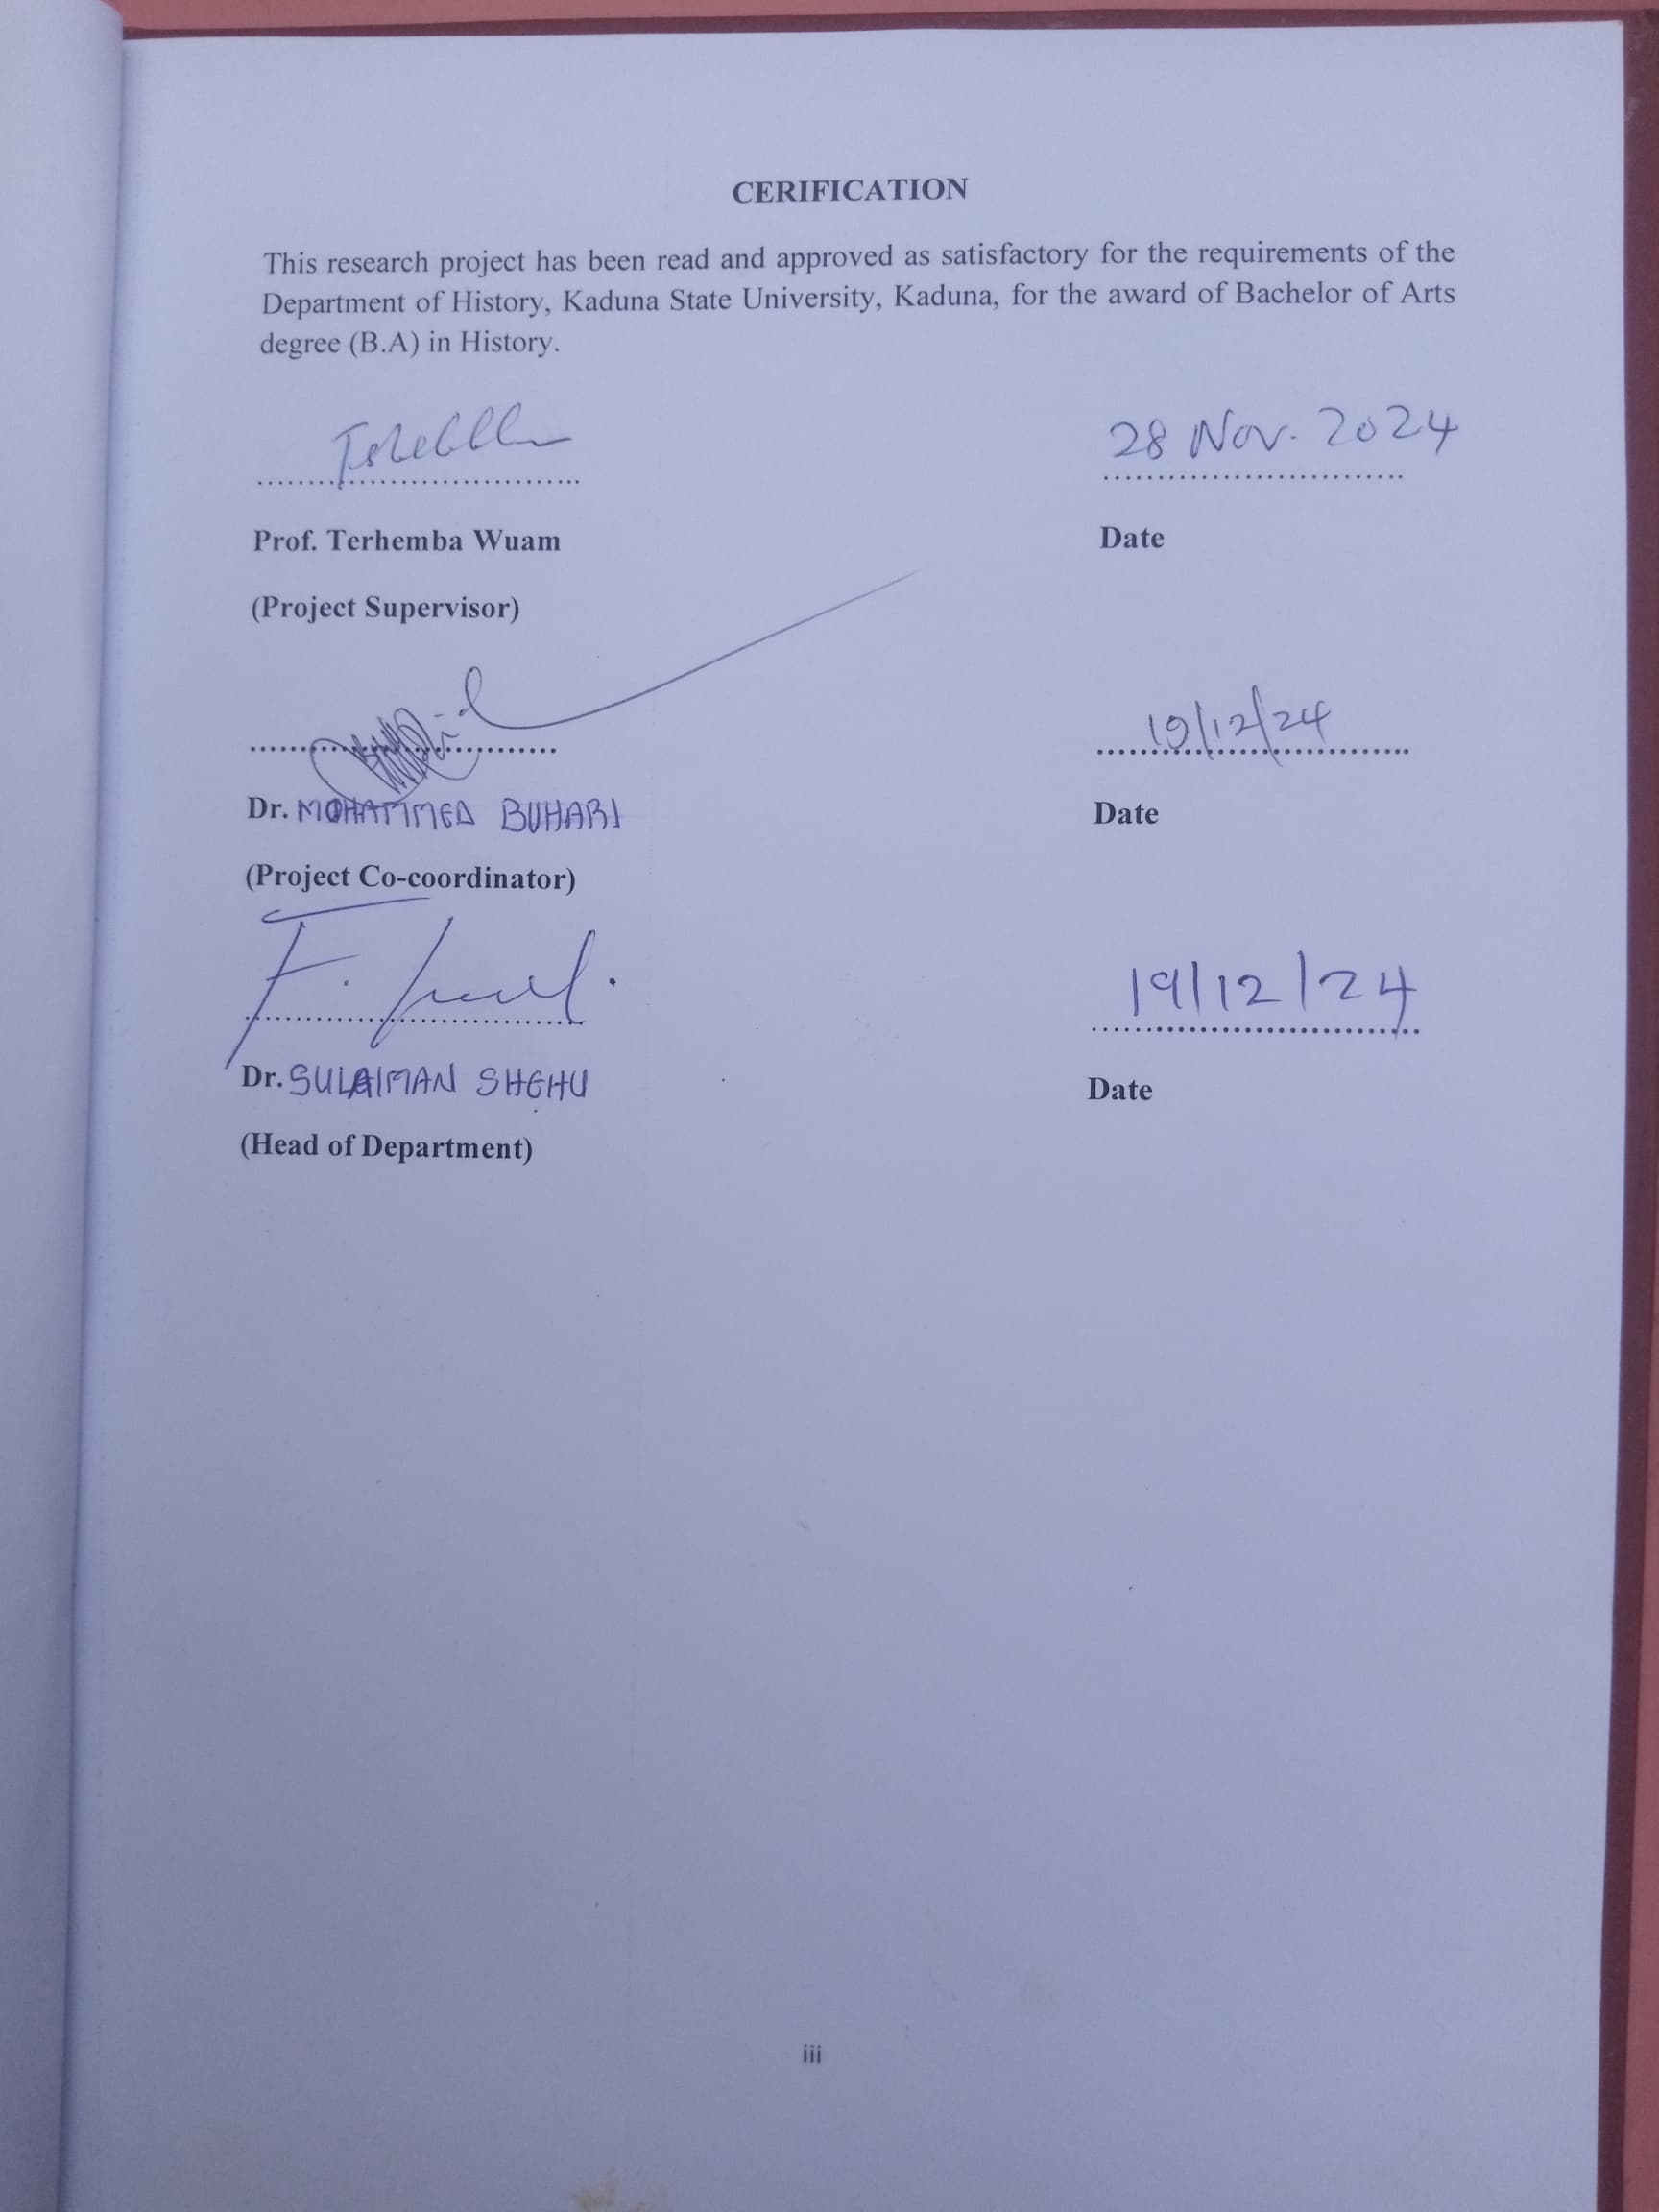 CERIFICATION
This research project has been read and approved as satisfactory for the requirements of the
Department of History, Kaduna State University, Kaduna, for the award of Bachelor of Arts
degree (B.A) in History.
28 Nov. 2024
Prof. Terhemba Wuam Date
(Project Supervisor)
19/12/24
Dr. MOHAMMED BUHARI Date
(Project Co-coordinator)
19/12/24
Dr. SULAIMAN SHEHU Date
(Head of Department)
iii